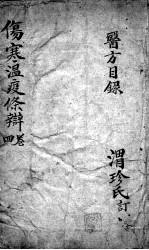 醫方目錄
渭珍氏訂
傷寒溫疫條辯
卷四